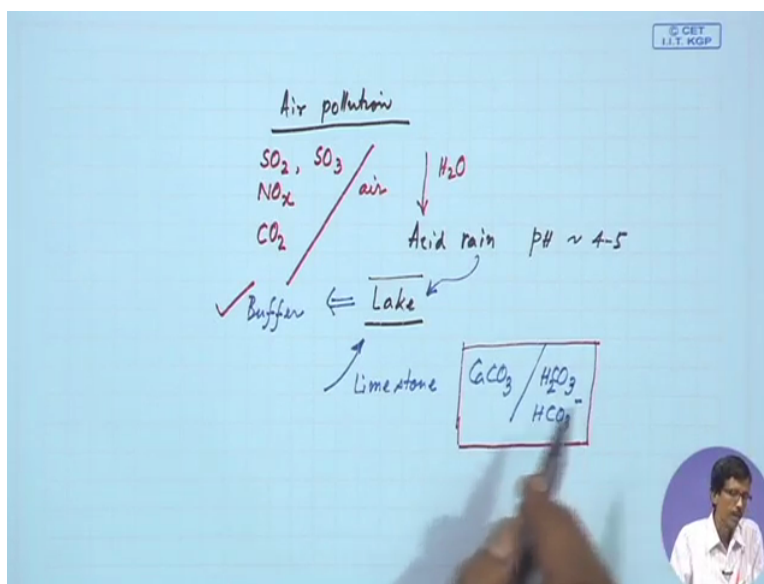 © CET
I.I.T. KGP
Air pollution
SO₂, SO₃
NOx / air
H₂O
CO₂
Acid rain pH ~ 4-5
✓ Buffer ⇐ Lake
Limestone
CaCO₃ / H₂CO₃
HCO₃⁻